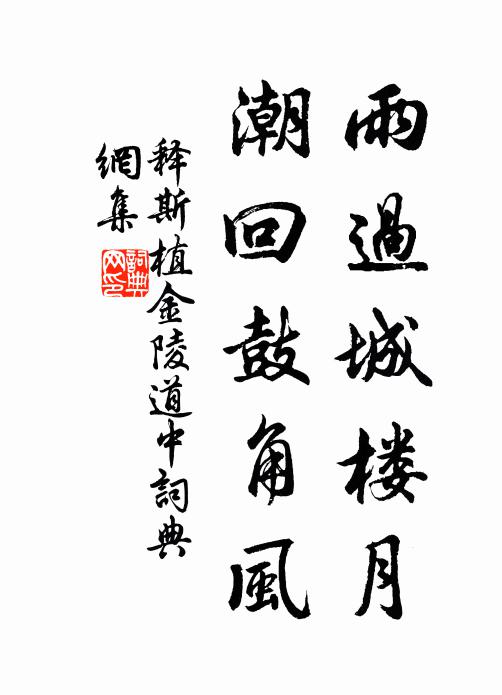 雨過城楼月
潮回鼓角風
释斯植金陵道中詞典
網集
詞典
网印